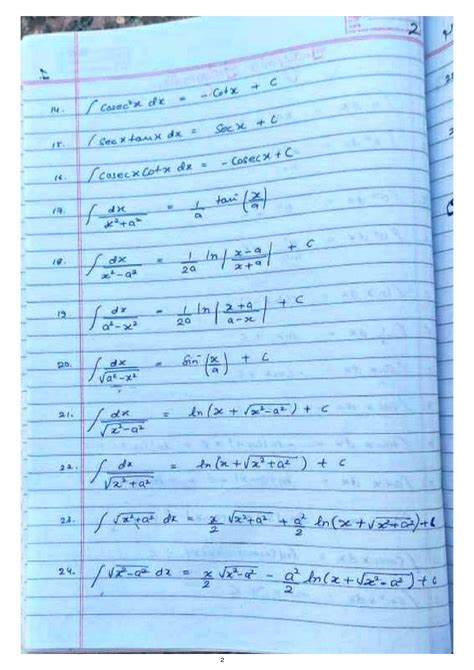 2
14. ∫ Cosec²x dx = - Cotx + C
15. ∫ Secx tanx dx = Secx + C
16. ∫ Cosecx Cotx dx = - Cosecx + C
17. ∫ dx/(x²+a²) = 1/a tan⁻(x/a)
18. ∫ dx/(x²-a²) = 1/2a ln|(x-a)/(x+a)| + C
19. ∫ dx/(a²-x²) = 1/2a ln|(x+a)/(a-x)| + C
20. ∫ dx/√(a²-x²) = Sin⁻(x/a) + C
21. ∫ dx/√(x²-a²) = ln(x + √(x²-a²)) + C
22. ∫ dx/√(x²+a²) = ln(x + √(x²+a²)) + C
23. ∫ √(x²+a²) dx = x/2 √(x²+a²) + a²/2 ln(x + √(x²+a²)) + C
24. ∫ √(x²-a²) dx = x/2 √(x²-a²) - a²/2 ln(x + √(x²-a²)) + C
2